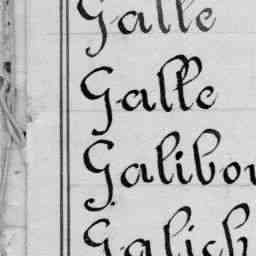 Galle
Galle
Galibou
Galich